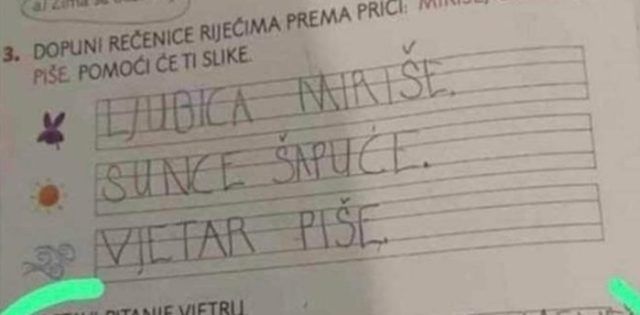 a) Zima
3. DOPUNI REČENICE RIJEČIMA PREMA PRIČI:
PIŠE. POMOĆI ĆE TI SLIKE.
LJUBICA MIRIŠE.
SUNCE ŠAPUĆE.
VJETAR PIŠE.
PITANJE VJETRU